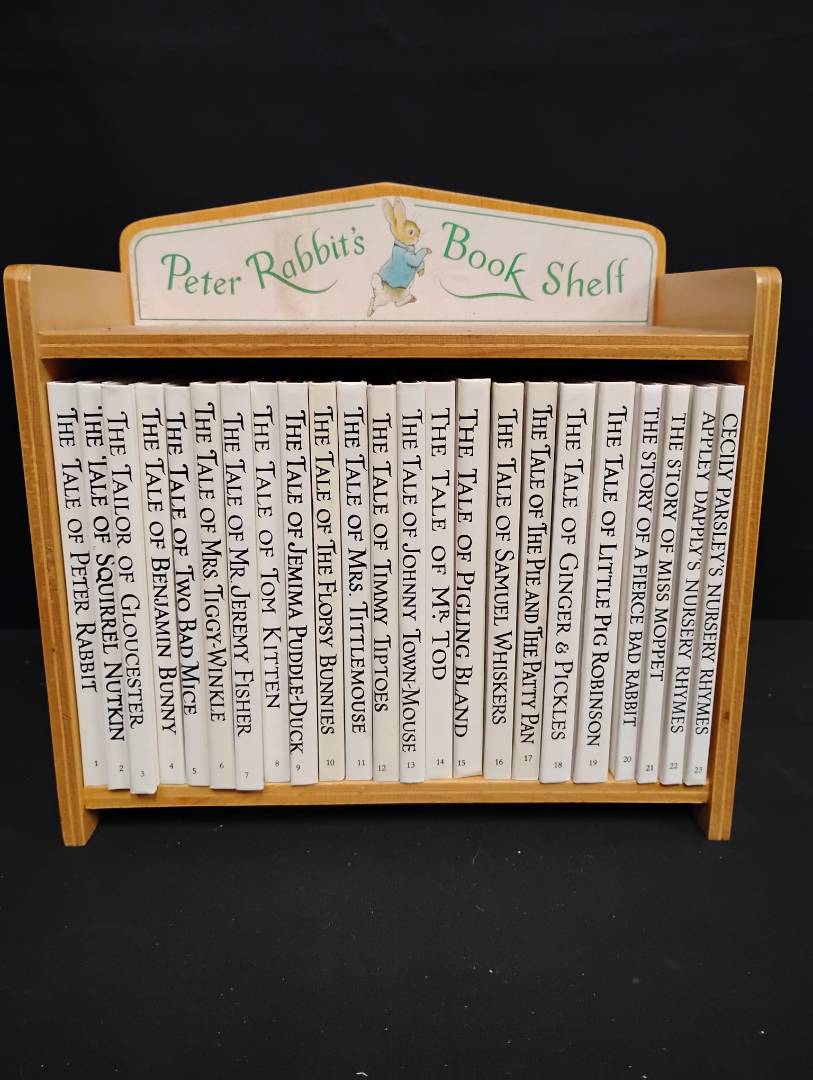 Peter Rabbit's Book Shelf
THE TALE OF PETER RABBIT 1
THE TALE OF SQUIRREL NUTKIN 2
THE TAILOR OF GLOUCESTER 3
THE TALE OF BENJAMIN BUNNY 4
THE TALE OF TWO BAD MICE 5
THE TALE OF MRS. TIGGY-WINKLE 6
THE TALE OF MR. JEREMY FISHER 7
THE TALE OF TOM KITTEN 8
THE TALE OF JEMIMA PUDDLE-DUCK 9
THE TALE OF THE FLOPSY BUNNIES 10
THE TALE OF MRS. TITTLEMOUSE 11
THE TALE OF TIMMY TIPTOES 12
THE TALE OF JOHNNY TOWN-MOUSE 13
THE TALE OF MR. TOD 14
THE TALE OF PIGLING BLAND 15
THE TALE OF SAMUEL WHISKERS 16
THE TALE OF THE PIE AND THE PATTY PAN 17
THE TALE OF GINGER & PICKLES 18
THE TALE OF LITTLE PIG ROBINSON 19
THE STORY OF A FIERCE BAD RABBIT 20
THE STORY OF MISS MOPPET 21
APPLEY DAPPLY'S NURSERY RHYMES 22
CECILY PARSLEY'S NURSERY RHYMES 23